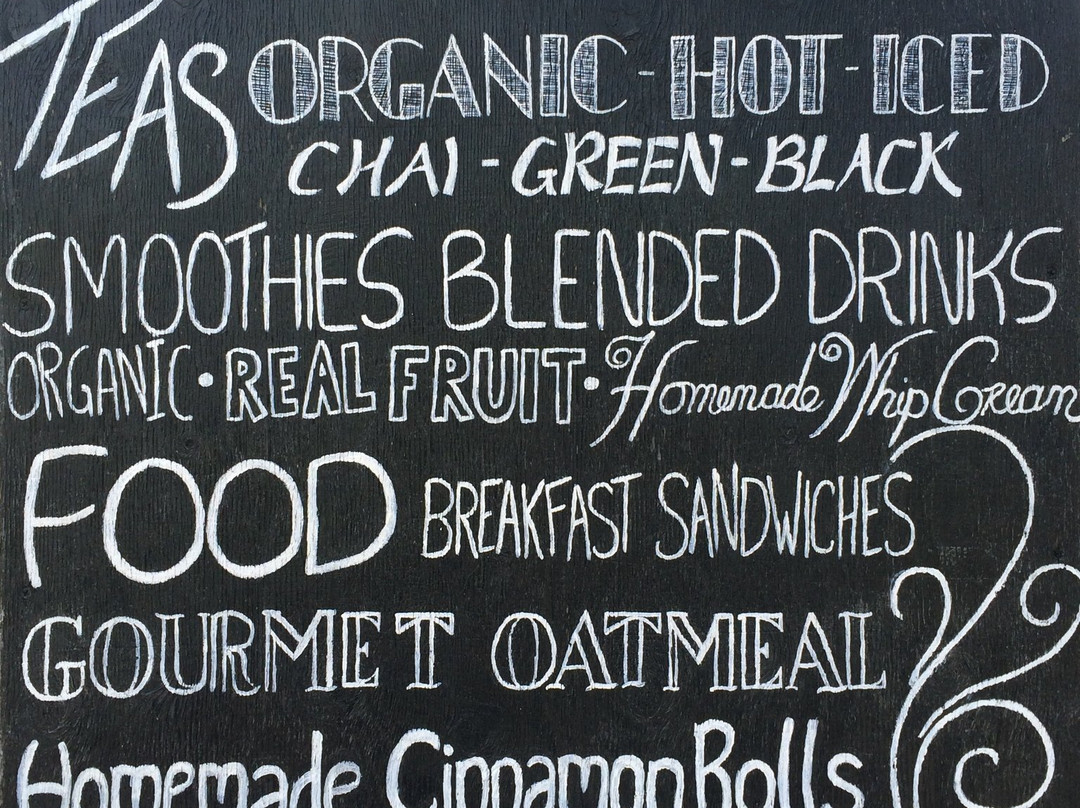 TEAS ORGANIC - HOT - ICED
CHAI - GREEN - BLACK
SMOOTHIES BLENDED DRINKS
ORGANIC • REAL FRUIT • Homemade Whip Cream
FOOD BREAKFAST SANDWICHES
GOURMET OATMEAL
Homemade Cinnamon Rolls